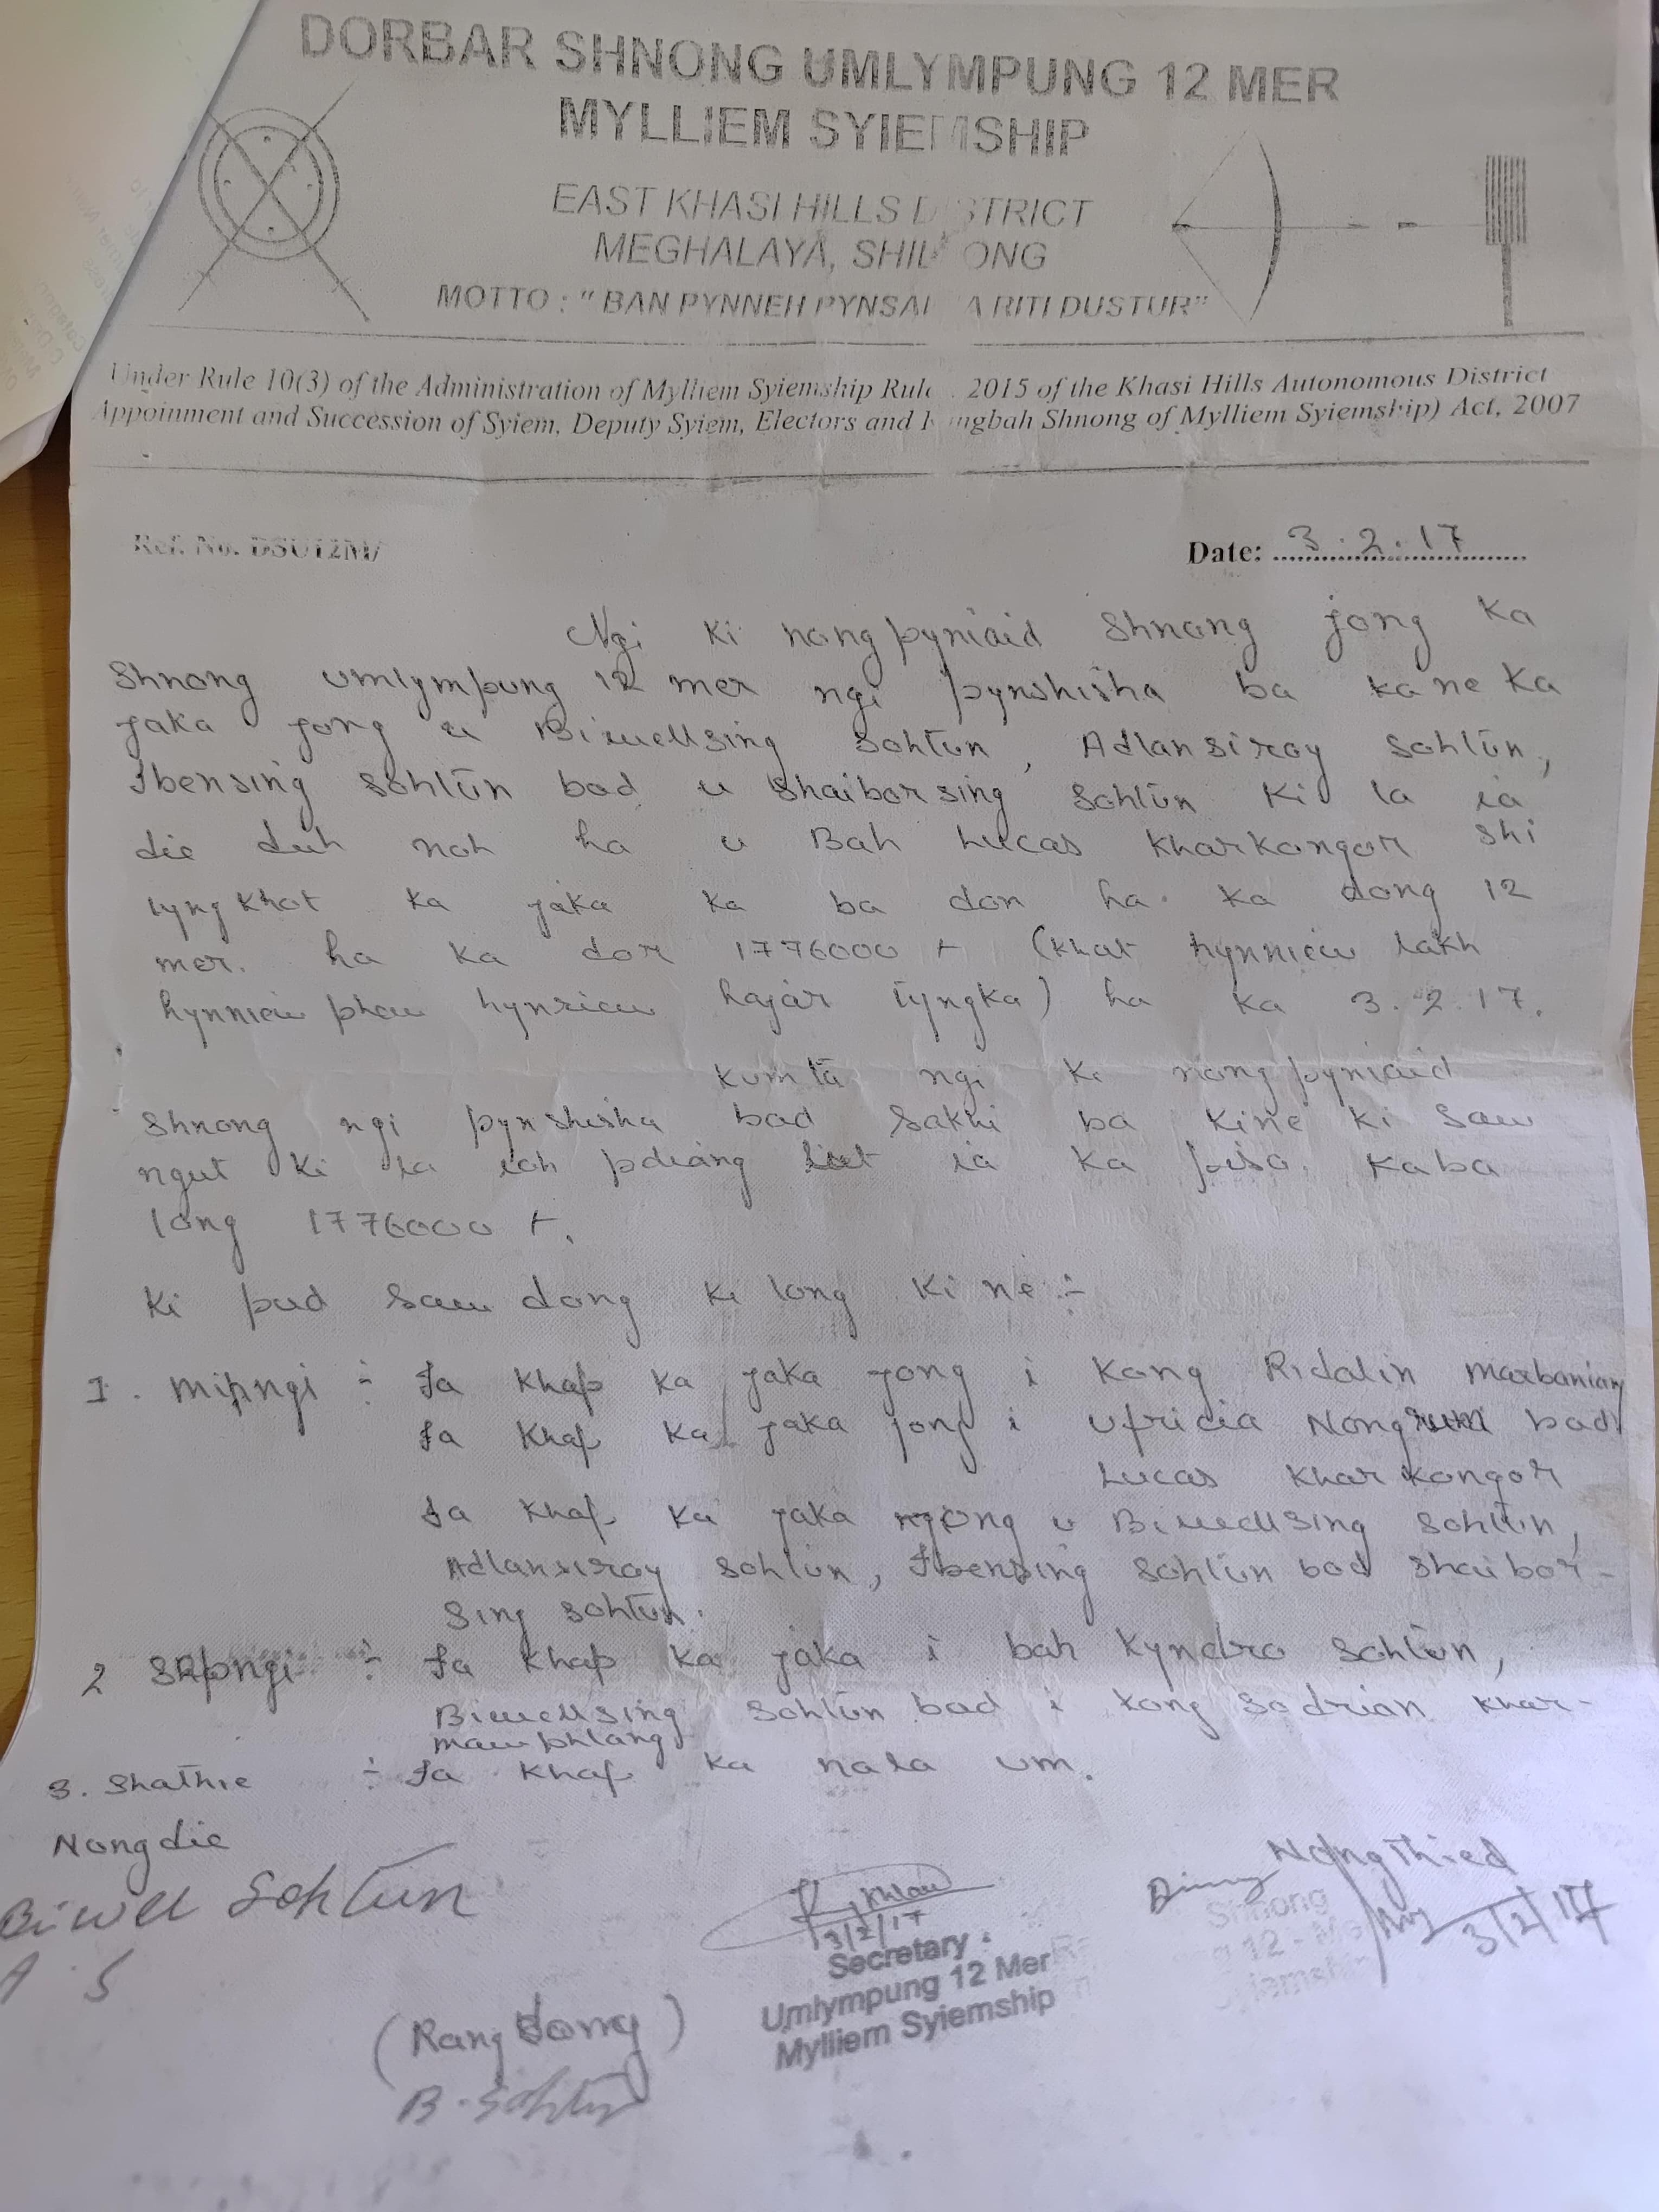 DORBAR SHNONG UMLYMPUNG 12 MER
MYLLIEM SYIEMSHIP
EAST KHASI HILLS DISTRICT
MEGHALAYA, SHILLONG
MOTTO : " BAN PYNNEH PYNSAH A RITI DUSTUR"
Under Rule 10(3) of the Administration of Mylliem Syiemship Rule 2015 of the Khasi Hills Autonomous District
Appoinment and Succession of Syiem, Deputy Syiem, Electors and Rangbah Shnong of Mylliem Syiemship) Act, 2007
Ref. No. DSU12M/
Date: 3.2.17
Ngi ki nongpyniaid Shnong jong ka
Shnong umlympung 12 mer ngi pynshisha ba kane ka
jaka jong u Biwellsing Sohtun, Adlansiroy Sohtun,
Ibensing Sohtun bad u Shaiborsing Sohtun ki la ia
die duh noh ha u Bah Lucas Kharkongor shi
lyngkhot ka jaka ka ba don ha ka dong 12
mer. ha ka dor 1776000 (khat hynniew lakh
hynniew phew hynriew hajar tyngka) ha ka 3.2.17.
Kumta ngi ki nongpyniaid
Shnong ngi pynshisha bad sakhi ba kine ki saw
ngut ki la ioh pdiang ia ka pisa kaba
long 1776000
Ki pud saw dong ki long kine :-
1. Mihngi :- Ia khap ka jaka jong i Kong Ridalin Marbaniang
Ia khap ka jaka jong i Ufricia bad
Lucas Kharkongor
Ia khap ka jaka u Biwellsing Sohtun,
Adlansiroy Sohtun, Ibensing Sohtun bad Shaibor-
sing Sohtun.
2 Sepngi :- Ia khap ka jaka i bah Kyndro Sohtun,
Biwellsing Sohtun bad i kong Sadrian Khar-
mawphlang
3. Shathie :- Ia khap ka nala um.
Nongdie
Nongthied
Biwell Sohtun
A.S
K. Khlau
3/2/17
Secretary
Umlympung 12 Mer
Mylliem Syiemship
Shnong
12 - Mer
Syiemship
3/2/17
(Rang Dong)
B. Sohtun